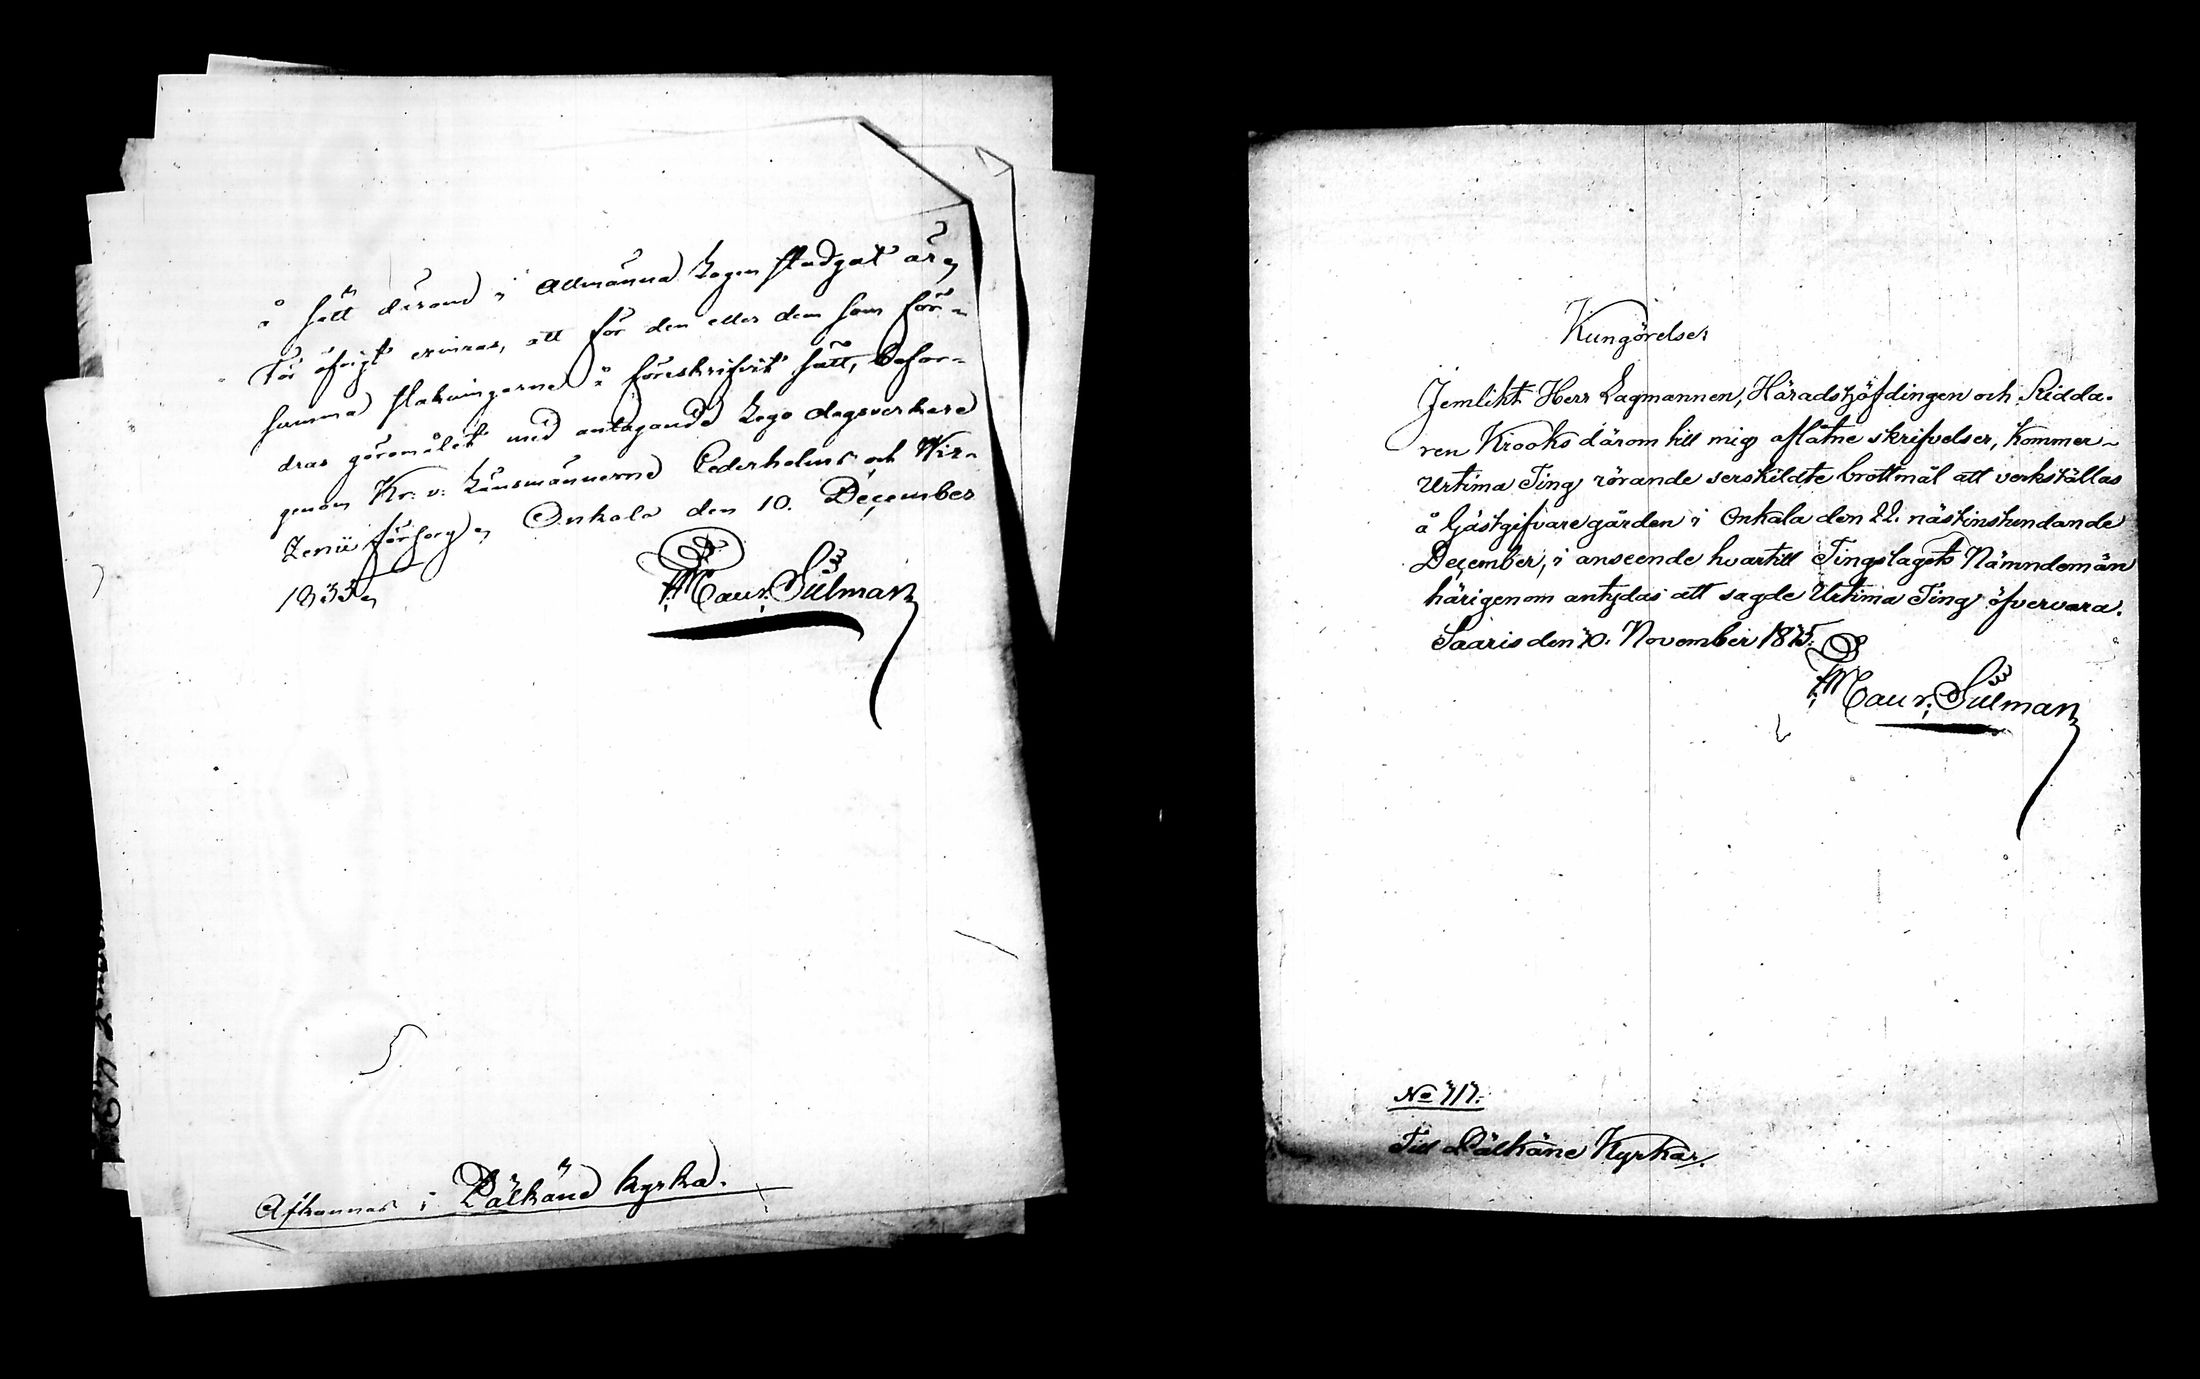 å sätt derom i Allmänna Lagen stadgat är,
För öfrigt erinras, att för den eller dem som för-
summa stakningarne å föreskrifvit sätt, befor-
dras göromålet med antagande Lego dagsverkare
genom Kr: v: Länsmännerne Cederholms och Wir-
zenii försorg, Onkala den 10. December
1835,
Maur. Silman
Afkannas i Pälkäne kyrka.
Kungörelse
Jemlikt Herr Lagmannen, Häradshöfdingen och Ridda-
ren Krooks därom till mig aflåtne skrifvelser, kommer
Urtima Ting rörande serskildte brottmål att verkställas
å Gästgifvaregården i Onkala den 22. nästinstundande
December, i anseende hvartill Tingslagets Nämndemän
härigenom antydas att sagde Urtima Ting öfvervara.
Saaris den November
Maur. Silman
No 717.
Till Pälkäne Kyrka.